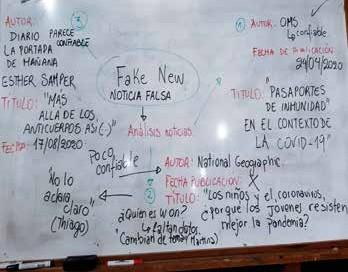 ③
AUTOR:
DIARIO PARECE
CONFIABLE
LA PORTADA
DE MAÑANA
ESTHER SAMPER
TÍTULO: "MÁS
ALLA DE LOS
ANTICUERPOS ASÍ(..)"
FECHA: 17/08/2020
Fake New
NOTICIA FALSA
Análisis noticias
① AUTOR: OMS
confiable
FECHA DE PUBLICACIÓN:
24/04/2020
TITULO: "PASAPORTES
DE INMUNIDAD"
EN EL CONTEXTO DE
LA COVID-19"
POCO
confiable
②
AUTOR: National Geographic
FECHA PUBLICACION: X
TÍTULO: "Los niños y el coronavirus,
¿porque los jovenes resisten
mejor la pandemia?
"No lo
aclara
claro"
(Thiago)
¿Quien es won?
faltan datos.
"Cambian de tema"